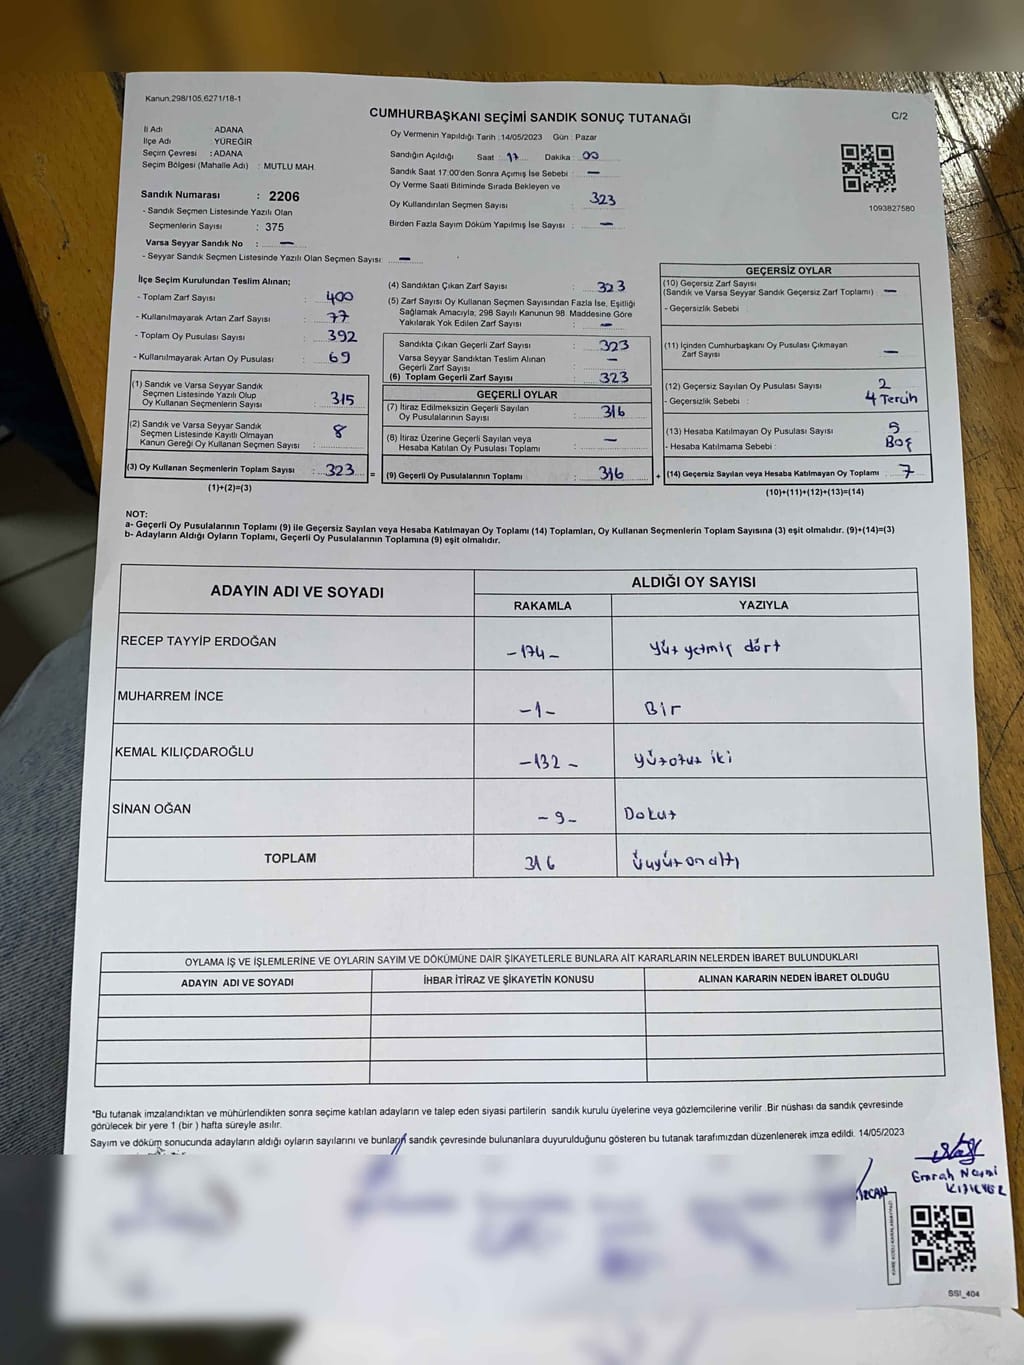 Kanun.298/105,6271/18-1
CUMHURBAŞKANI SEÇİMİ SANDIK SONUÇ TUTANAĞI
C/2
İl Adı ADANA
İlçe Adı YÜREĞİR
Seçim Çevresi : ADANA
Seçim Bölgesi (Mahalle Adı) : MUTLU MAH.
Sandık Numarası : 2206
- Sandık Seçmen Listesinde Yazılı Olan
Seçmenlerin Sayısı : 375
Varsa Seyyar Sandık No : —
- Seyyar Sandık Seçmen Listesinde Yazılı Olan Seçmen Sayısı : —
Oy Vermenin Yapıldığı Tarih :14/05/2023 Gün : Pazar
Sandığın Açıldığı Saat : 17 Dakika : 00
Sandık Saat 17:00'den Sonra Açılmış İse Sebebi : —
Oy Verme Saati Bitiminde Sırada Bekleyen ve
Oy Kullandırılan Seçmen Sayısı : 323
Birden Fazla Sayım Döküm Yapılmış İse Sayısı : —
1093827580
İlçe Seçim Kurulundan Teslim Alınan;
- Toplam Zarf Sayısı : 400
- Kullanılmayarak Artan Zarf Sayısı : 77
- Toplam Oy Pusulası Sayısı : 392
- Kullanılmayarak Artan Oy Pusulası : 69
(1) Sandık ve Varsa Seyyar Sandık
Seçmen Listesinde Yazılı Olup
Oy Kullanan Seçmenlerin Sayısı : 315
(2) Sandık ve Varsa Seyyar Sandık
Seçmen Listesinde Kayıtlı Olmayan
Kanun Gereği Oy Kullanan Seçmen Sayısı : 8
(3) Oy Kullanan Seçmenlerin Toplam Sayısı : 323 =
(1)+(2)=(3)
(4) Sandıktan Çıkan Zarf Sayısı : 323
(5) Zarf Sayısı Oy Kullanan Seçmen Sayısından Fazla İse, Eşitliği
Sağlamak Amacıyla; 298 Sayılı Kanunun 98. Maddesine Göre
Yakılarak Yok Edilen Zarf Sayısı : —
Sandıkta Çıkan Geçerli Zarf Sayısı : 323
Varsa Seyyar Sandıktan Teslim Alınan
Geçerli Zarf Sayısı : —
(6) Toplam Geçerli Zarf Sayısı : 323
GEÇERLİ OYLAR
(7) İtiraz Edilmeksizin Geçerli Sayılan
Oy Pusulalarının Sayısı : 316
(8) İtiraz Üzerine Geçerli Sayılan veya
Hesaba Katılan Oy Pusulası Toplamı : —
(9) Geçerli Oy Pusulalarının Toplamı : 316 +
GEÇERSİZ OYLAR
(10) Geçersiz Zarf Sayısı
(Sandık ve Varsa Seyyar Sandık Geçersiz Zarf Toplamı) : —
- Geçersizlik Sebebi :
(11) İçinden Cumhurbaşkanı Oy Pusulası Çıkmayan
Zarf Sayısı : —
(12) Geçersiz Sayılan Oy Pusulası Sayısı : 2
- Geçersizlik Sebebi : 4 Tercih
(13) Hesaba Katılmayan Oy Pusulası Sayısı : 5
- Hesaba Katılmama Sebebi : Boş
(14) Geçersiz Sayılan veya Hesaba Katılmayan Oy Toplamı : 7
(10)+(11)+(12)+(13)=(14)
NOT:
a- Geçerli Oy Pusulalarının Toplamı (9) ile Geçersiz Sayılan veya Hesaba Katılmayan Oy Toplamı (14) Toplamları, Oy Kullanan Seçmenlerin Toplam Sayısına (3) eşit olmalıdır. (9)+(14)=(3)
b- Adayların Aldığı Oyların Toplamı, Geçerli Oy Pusulalarının Toplamına (9) eşit olmalıdır.
ADAYIN ADI VE SOYADI ALDIĞI OY SAYISI
RAKAMLA YAZIYLA
RECEP TAYYİP ERDOĞAN -174- Yüz yetmiş dört
MUHARREM İNCE -1- Bir
KEMAL KILIÇDAROĞLU -132- Yüzotuz iki
SİNAN OĞAN -9- Dokuz
TOPLAM 316 Üçyüzonaltı
OYLAMA İŞ VE İŞLEMLERİNE VE OYLARIN SAYIM VE DÖKÜMÜNE DAİR ŞİKAYETLERLE BUNLARA AİT KARARLARIN NELERDEN İBARET BULUNDUKLARI
ADAYIN ADI VE SOYADI İHBAR İTİRAZ VE ŞİKAYETİN KONUSU ALINAN KARARIN NEDEN İBARET OLDUĞU
*Bu tutanak imzalandıktan ve mühürlendikten sonra seçime katılan adayların ve talep eden siyasi partilerin sandık kurulu üyelerine veya gözlemcilerine verilir. Bir nüshası da sandık çevresinde
görülecek bir yere 1 (bir) hafta süreyle asılır.
Sayım ve döküm sonucunda adayların aldığı oyların sayılarını ve bunların sandık çevresinde bulunanlara duyurulduğunu gösteren bu tutanak tarafımızdan düzenlenerek imza edildi. 14/05/2023
Emrah
SSI_404